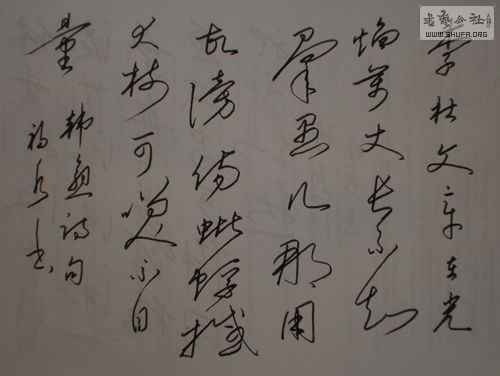 書藝公社
WWW.SHUFA.ORG
李杜文章在光
焰萬丈长不知
羣愚儿那用
故谤伤蚍蜉撼
大树可笑不自
量
韩愈诗句
书